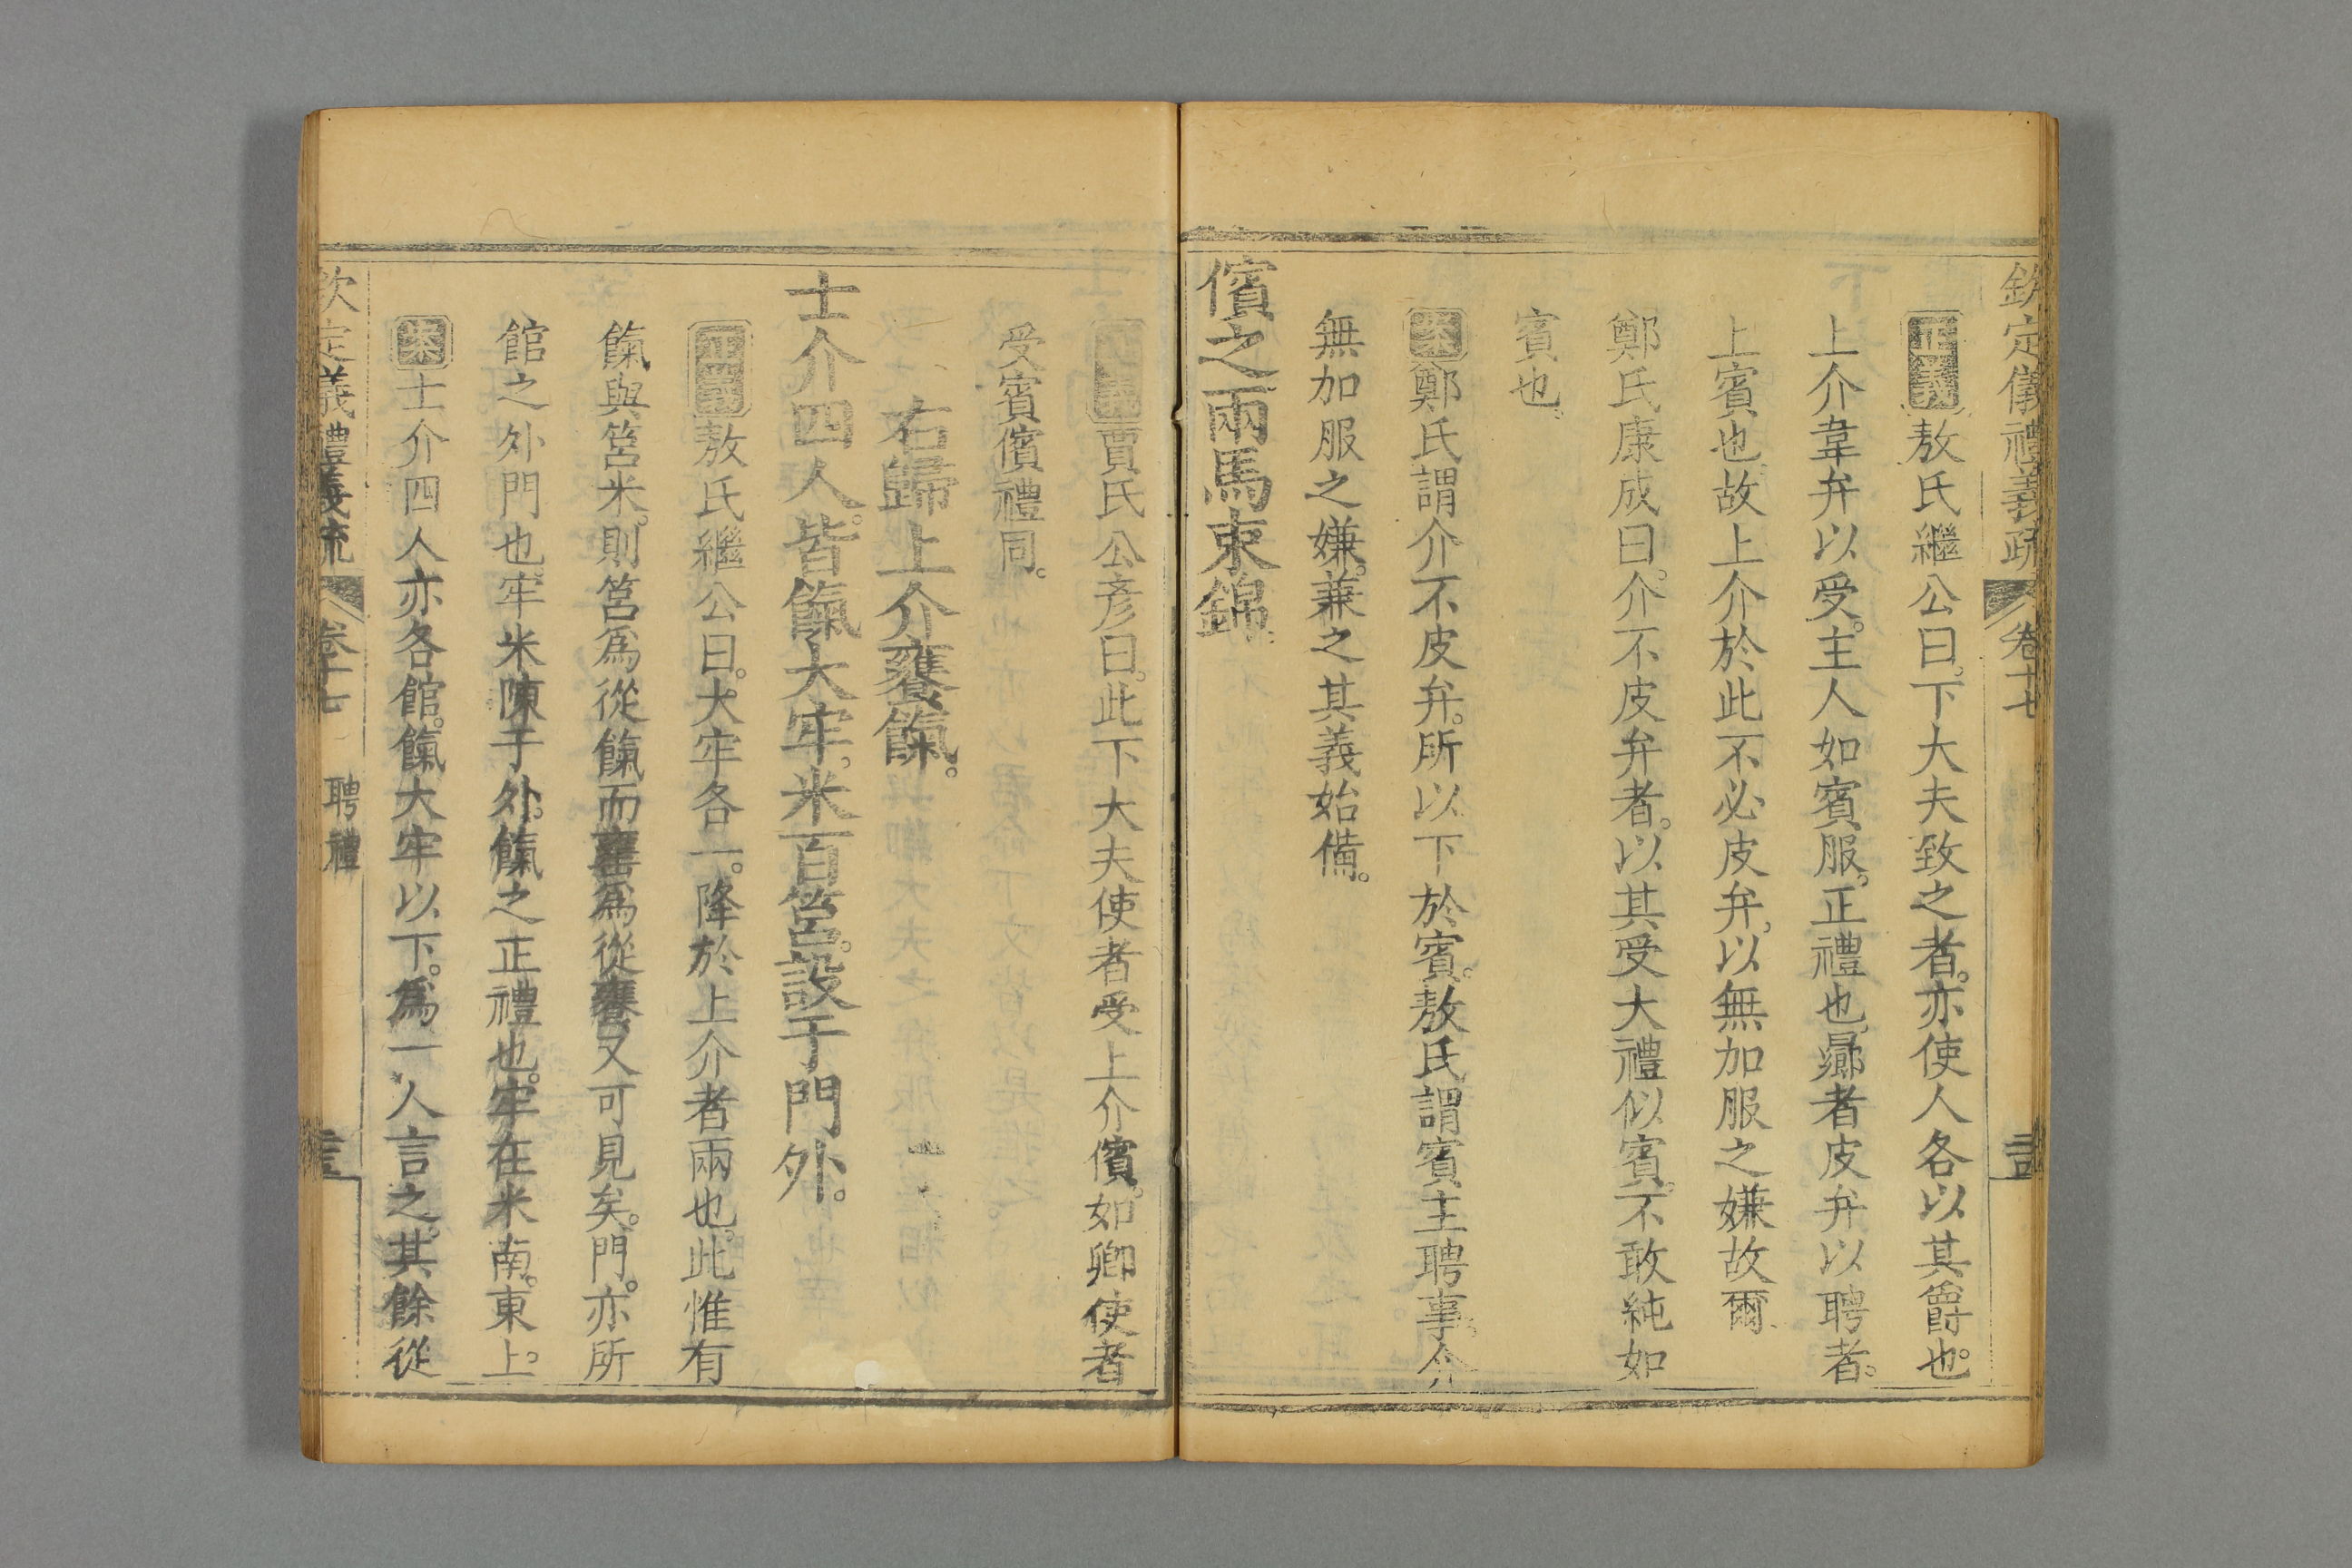 欽定儀禮義疏 卷十七
正義敖氏繼公曰。下大夫致之者。亦使人各以其爵也。
上介韋弁以受。主人如賓服。正禮也。曏者皮弁以聘者。
上賓也。故上介於此不必皮弁。以無加服之嫌故爾。
鄭氏康成曰。介不皮弁者。以其受大禮似賓。不敢純如
賓也。
案鄭氏謂介不皮弁。所以下於賓。敖氏謂賓主聘事。介
無加服之嫌。兼之其義始備。
儐之兩馬束錦。
正義賈氏公彥曰。此下大夫使者受上介儐。如卿使者
受賓儐禮同。
右歸上介饔餼。
士介四人。皆餼大牢。米百筥。設于門外。
正義敖氏繼公曰。大牢各一。降於上介者兩也。此惟有
餼與筥米。則筥為從餼而罋為從饔又可見矣。門。亦所
館之外門也。牢米陳于外。餼之正禮也。牢在米南。東上。
案士介四人亦各館。餼大牢以下。為一人言之。其餘從
欽定義禮義疏 卷十七 聘禮